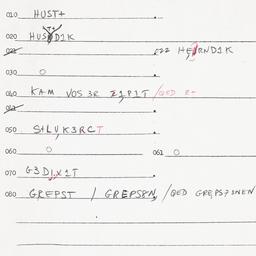 010 HUST+
020 HUSYD1K
022 HERND1K
030 O
040 KAM VOS3R Z1P1T /QED
050 S+LUK3RCT
060 O 061 O
070 G3DJX1T
080 GREPST / GREPS8N, /QED GREPS7SNEN